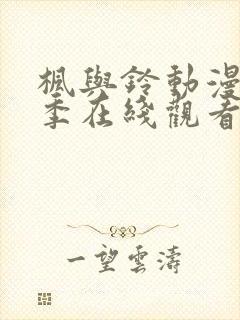 楓與鈴動漫
季在綫觀看
一望雲濤